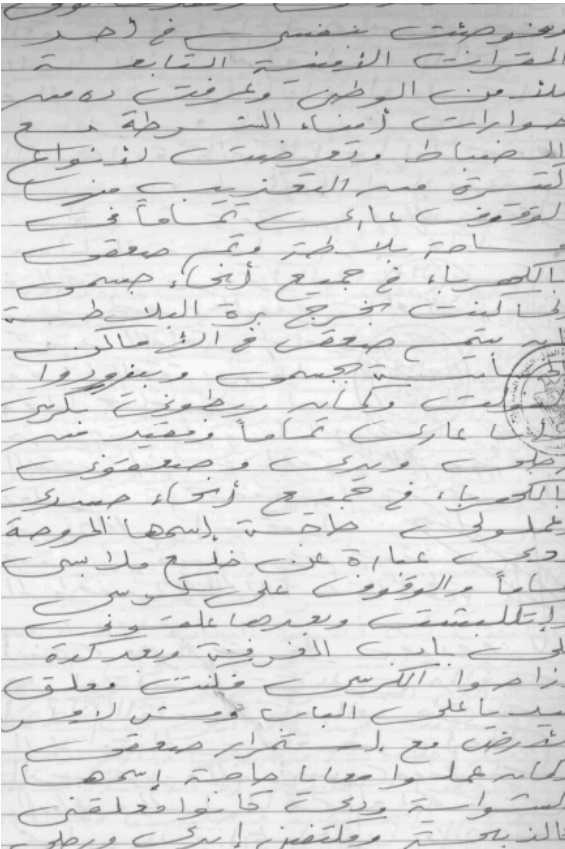 وفوجئت بنفسى فى أحد
المقرات الأمنية التابعة
للأمن الوطنى وعرفت ده من
حوارات أمناء الشرطة مع
الضباط وتعرضت لأنواع
كثيرة من التعذيب منها
الوقوف عارى تماماً فى
مساحة بلاطة وتم صعقى
بالكهرباء فى جميع أنحاء جسمى
لما كنت بخرج برة البلاطة
يتم صعقى فى الأماكن
الحساسة بجسمى وبيزودوا
وكمان ربطونى بكرسى
وأنا عارى تماماً ومقيد من
رجلى ويدى وصعقونى
بالكهرباء فى جميع أنحاء جسدى
وعملولى حاجة إسمها المروحة
ودى عبارة عن خلع ملابسى
تماماً والوقوف على كرسى
وإتكلبشت وبعدها علقونى
على باب الغرفة وبعد كدة
زاحوا الكرسى فكنت معلق
بيديا على الباب ومش لامس
الأرض مع إستمرار صعقى
وكمان عملوا معايا حاجة إسمها
الشواية ودى كانوا معلقنى
كالذبيحة ومكتفين إيدى ورجلى